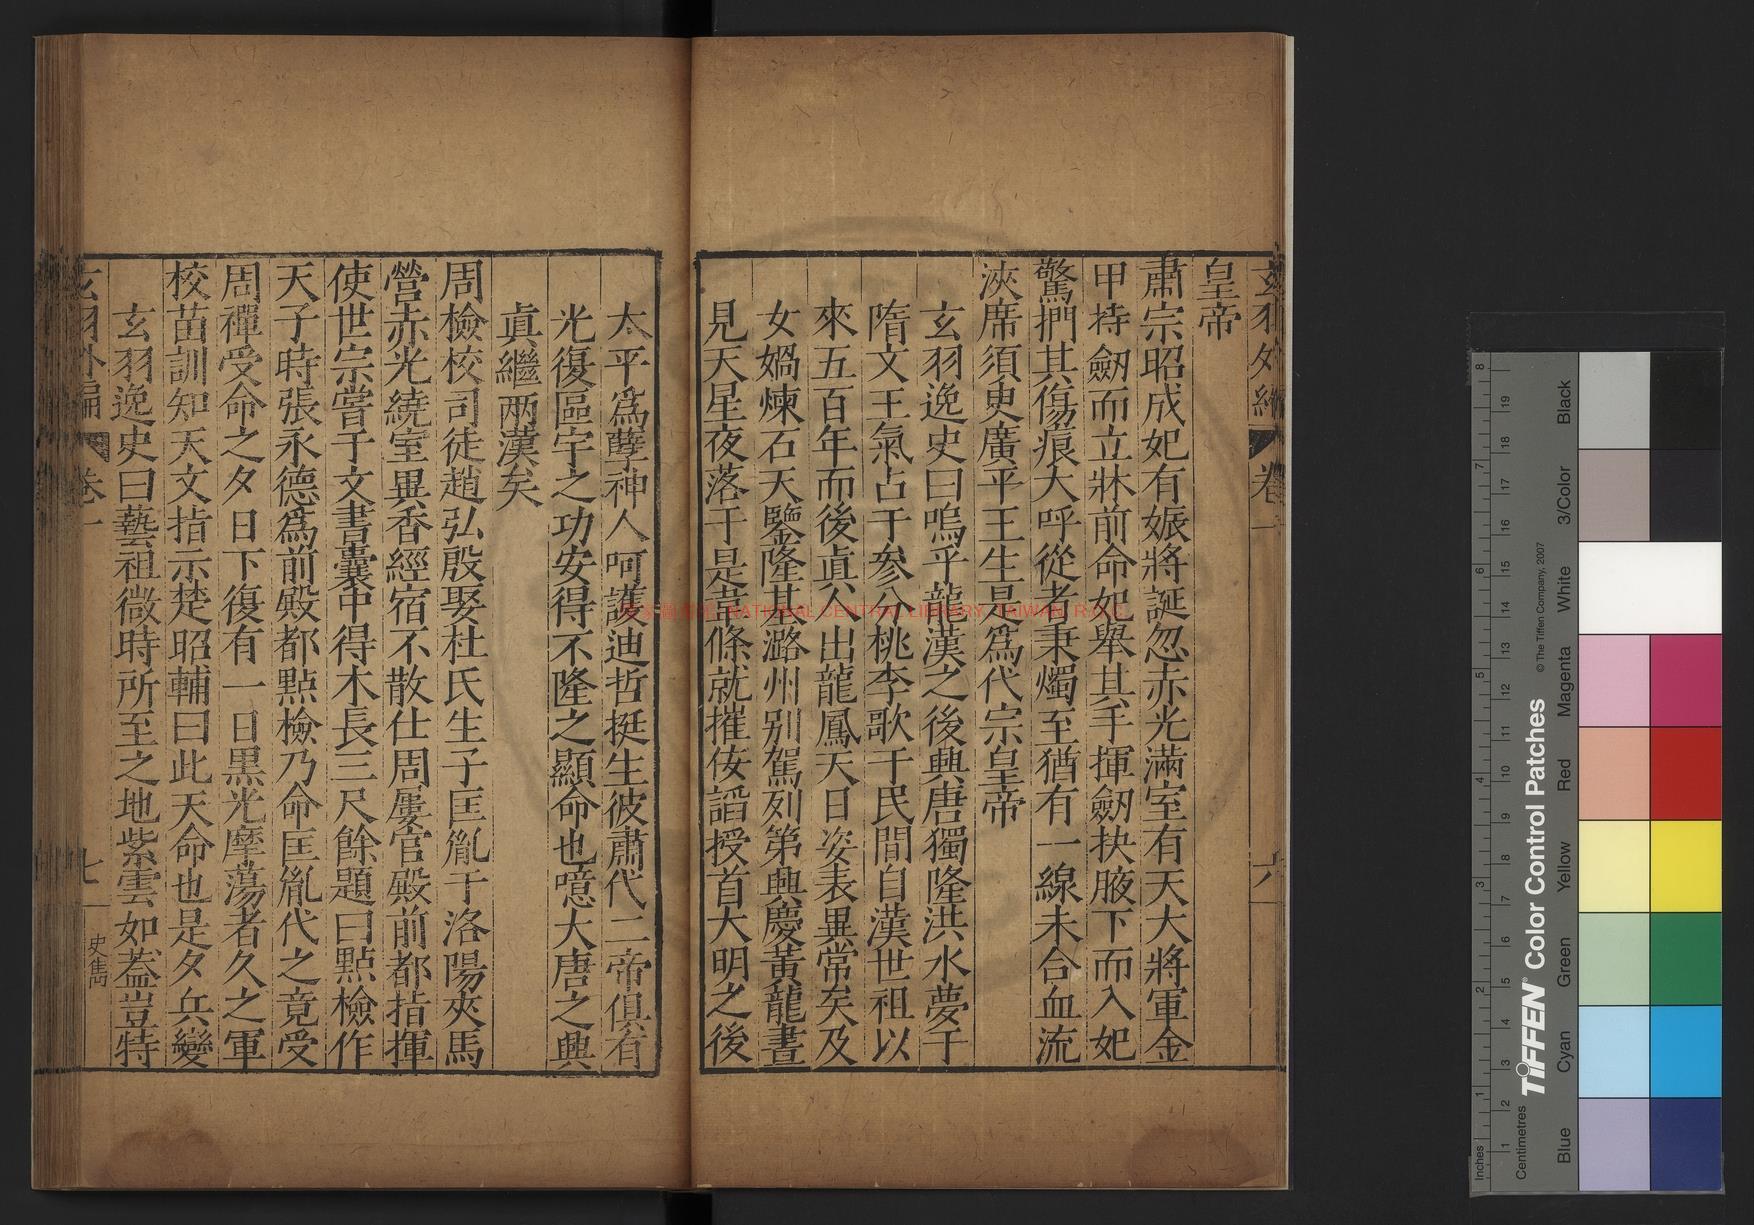 皇帝
肅宗昭成妃有娠將誕忽赤光滿室有天大將軍金
甲持劒而立牀前命妃舉其手揮劒抉腋下而入妃
驚捫其傷痕大呼從者秉燭至猶有一線未合血流
浹席須臾廣平王生是爲代宗皇帝
玄羽逸史曰嗚乎龍漢之後興唐獨隆洪水夢于
隋文王氣占于參分桃李歌于民間自漢世祖以
來五百年而後眞人出龍鳳天日姿表異常矣及
女媧煉石天鑒隆基潞州別駕列第興慶黃龍晝
見天星夜落于是韋條就摧侫謟授首大明之後
太平爲孽神人呵護迪哲挺生彼肅代二帝俱有
光復區宇之功安得不隆之顯命也噫大唐之興
眞繼两漢矣
周檢校司徒趙弘殷娶杜氏生子匡胤于洛陽夾馬
營赤光繞室異香經宿不散仕周屢官殿前都指揮
使世宗嘗于文書囊中得木長三尺餘題曰點檢作
天子時張永德爲前殿都點檢乃命匡胤代之竟受
周禪受命之夕日下復有一日黒光摩蕩者久之軍
校苗訓知天文指示楚昭輔曰此天命也是夕兵變
玄羽逸史曰藝祖微時所至之地紫雲如蓋豈特
玄羽外編 卷一 七 史雋
玄羽外編 卷一 六
NATIONAL CENTRAL LIBRARY, TAIWAN, R.O.C.
Inches 1 2 3 4 5 6 7 8
Centimetres 1 2 3 4 5 6 7 8 9 10 11 12 13 14 15 16 17 18 19
TIFFEN® Color Control Patches
© The Tiffen Company, 2007
Blue Cyan Green Yellow Red Magenta White 3/Color Black